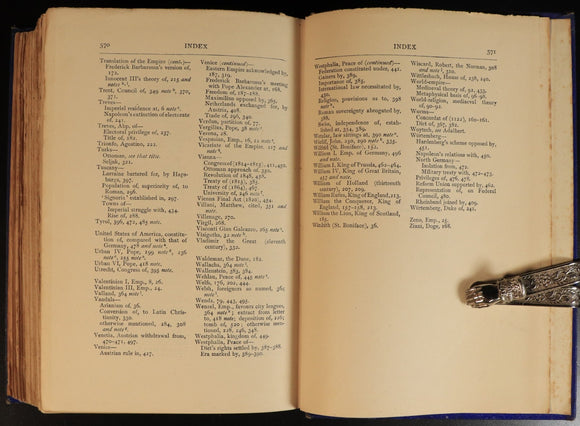 570
INDEX
Translation of the Empire (cont.)—
Frederick Barbarossa's version of,
172.
Innocent III's theory of, 215 and
note
Trent, Council of, 349 note, 370,
371.
Treves—
Imperial residence at, 6 note
Napoleon's extinction of electorate
of, 241.
Treves, Abp. of—
Electoral privilege of, 237.
Title of, 182.
Triods, Agostion, 222.
Turks—
Ottoman, see that title.
Seljuk, 321.
Tuscany—
Lorraine bartered for, by Haps-
burgs, 397.
Population of, superiority of, to
Roman, 296.
"Signoria" established in, 297.
Towns of—
Imperial struggle with, 434
Rise of, 288.
Tyrol, 396, 472, 485 note.
United States of America, constitu-
tion of, compared with that of
Germany, 478 and note
Urban IV, Pope, 199 note, 236
note, 253 note
Urban VI, Pope, 418 note.
Utrecht, Congress of, 395 note.
Valentinian I, Emp., 8, 26.
Valentinian III, Emp., 24.
Valland, 364 note
Vandals—
Arianism of, 36.
Conversion of, to Latin Chris-
tianity, 330.
otherwise mentioned, 284, 308
and note
Venetia, Austrian withdrawal from,
470-471, 497.
Venice—
Austrian rule in, 427.
Venice (continued)—
Eastern Empire acknowledged by,
187, 319.
Frederick Barbarossa's meeting
with Pope Alexander at, 168.
Freedom of, 187-188.
Maximilian opposed by, 365.
Netherlands exchanged for, by
Austria, 408.
Trade of, 296, 340.
Verdun, partition of, 77.
Vergilius, Pope, 38 note
Verona, 28.
Vespasian, Emp., 16, 21 note
Vicariate of the Empire, 127 and
note
Vienna—
Congress of (1814-1815), 411, 452.
Ottoman approach of, 350.
Revolution of 1848, 458.
Treaty of (1815), 367.
Treaty of (1864), 467.
University of, 246 note
Vienna Final Act (1820), 454.
Villani, Matthew, cited, 351 and
note.
Villenage, 270.
Virgil, 268.
Visconti Gian Galeazzo, 265 note
Visigoths, 32 note
Vladimir the Great (eleventh
century), 332.
Waldemar, the Dane, 182.
Wallachs, 364 note
Wallenstein, 383, 384.
Wehlan, Pence of, 445 note
Welfs, 176, 202, 444.
Welsh, foreigners so named, 364
note
Wends, 79, 443, 493.
Wenzel, Emp., favours city leagues,
364 note; extract from letter
to, 418 note; deposition of, 226;
tomb of, 520; otherwise men-
tioned, 228, 246, 348.
Westphalia, kingdom of, 449.
Westphalia, Peace of—
Diet's rights settled by, 387-388.
Era marked by, 389-390.
INDEX
571
Westphalia, Peace of (continued)—
Federation constituted under, 441.
Gainers by, 389.
Importance of, 385.
International law necessitated by,
450.
Religion, provisions as to, 398
note
Roman sovereignty abrogated by,
388.
Swiss, Independence of, estab-
lished at, 354, 389.
Wetzlar, law sittings at, 390 note
Wiclif, John, 250, 290, 364 note
Willibald (St. Boniface), 151.
William I, Emp. of Germany, 496
and note
William I, King of Prussia, 462-464.
William IV, King of Great Britain,
457 and note.
William of Holland (thirteenth
century), 207, 209.
William Rufus, King of England, 213.
William the Conqueror, King of
England, 157-158, 213.
William the Lion, King of Scotland,
185.
Winfrith (St. Boniface), 36.
Wiscard, Robert, the Norman, 308
and note, 320.
Wittlesbach, House of, 238, 240.
World-empire—
Mediaeval theory of, 92, 433.
Metaphysical basis of, 96-98.
World-religion, mediaeval theory
of, 90-92.
Worms—
Concordat of (1122), 160-161.
Diet of, 367, 382.
Woytech, see Adalbert.
Würtemberg—
Hardenberg's scheme opposed by,
451.
Napoleon's relations with, 450.
North Germany—
Isolation from, 472.
Military treaty with, 472-473.
Privileges of, 476, 478.
Reform Union supported by, 462.
Representation of, on Federal
Council, 474.
Rheinbund joined by, 409.
Würtemberg, Duke of, 241.
Zeno, Emp., 25.
Ziani, Doge, 288.